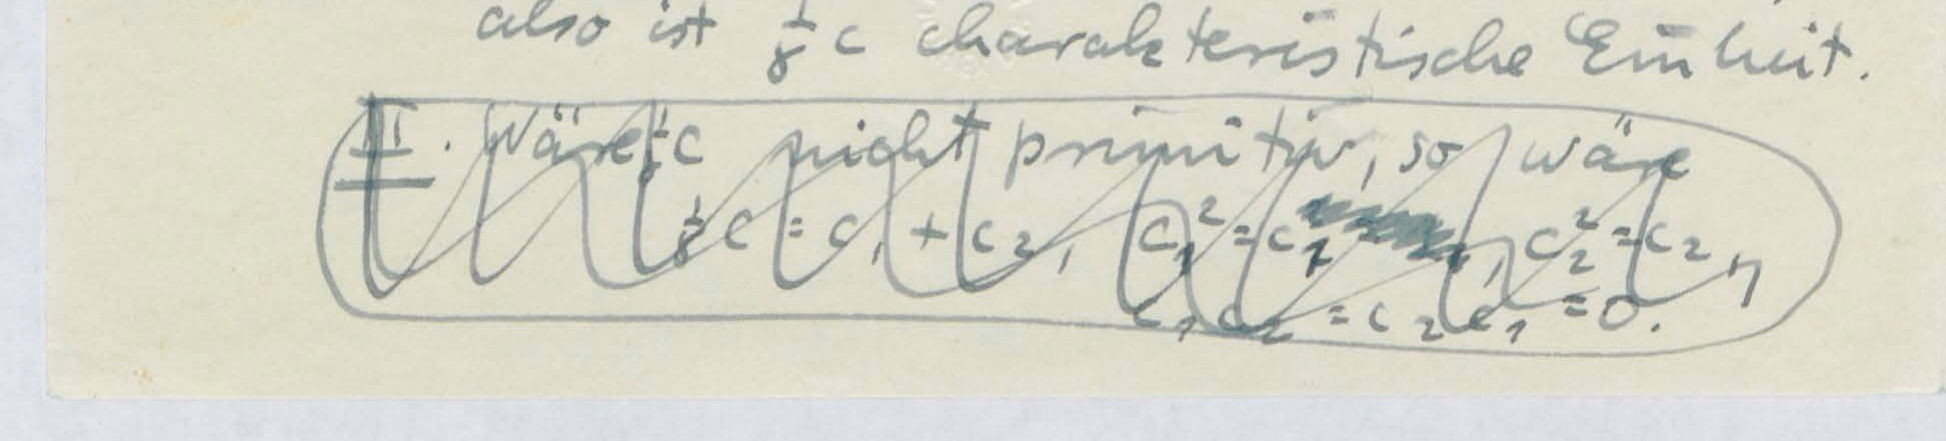 also ist 1/γ c charakteristische Einheit.
II. Wäre 1/γ c nicht primitiv, so wäre
1/γ c = c₁ + c₂, c₁² = c₁, c₂² = c₂,
c₁c₂ = c₂c₁ = 0.